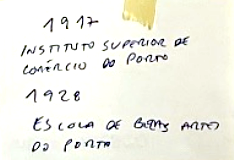 1917
INSTITUTO SUPERIOR DE
COMÉRCIO DO PORTO
1928
ESCOLA DE BELAS ARTES
DO PORTO